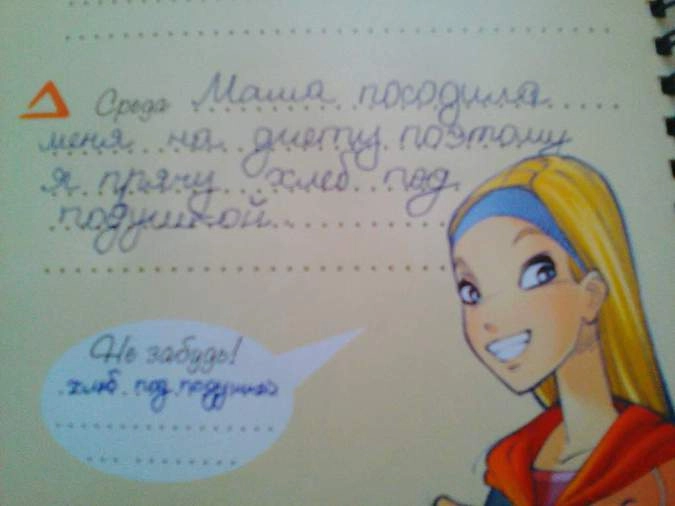 Среда Маша посодила
меня на диету поэтому
я прячу хлеб под
подушкой
Не забудь!
хлеб под подушкой